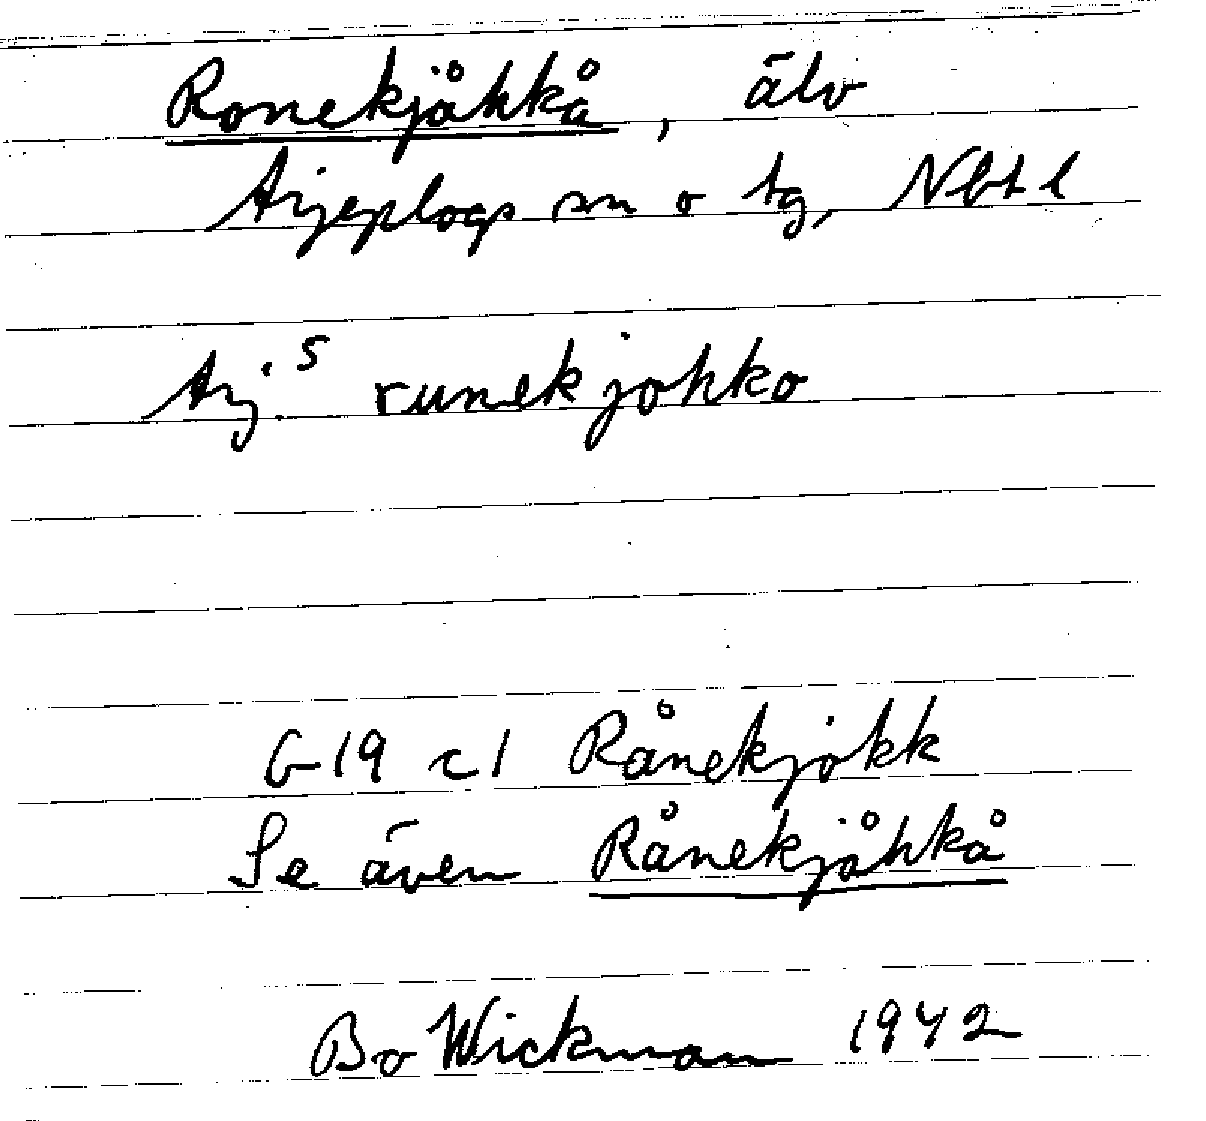 Ronekjåhkå, älv
Arjeplogs sn o tg, Nbtl
Arj.S runekjohko
G19 c1 Rånekjokk
Se även Rånekjåhkå
Bo Wickman 1942